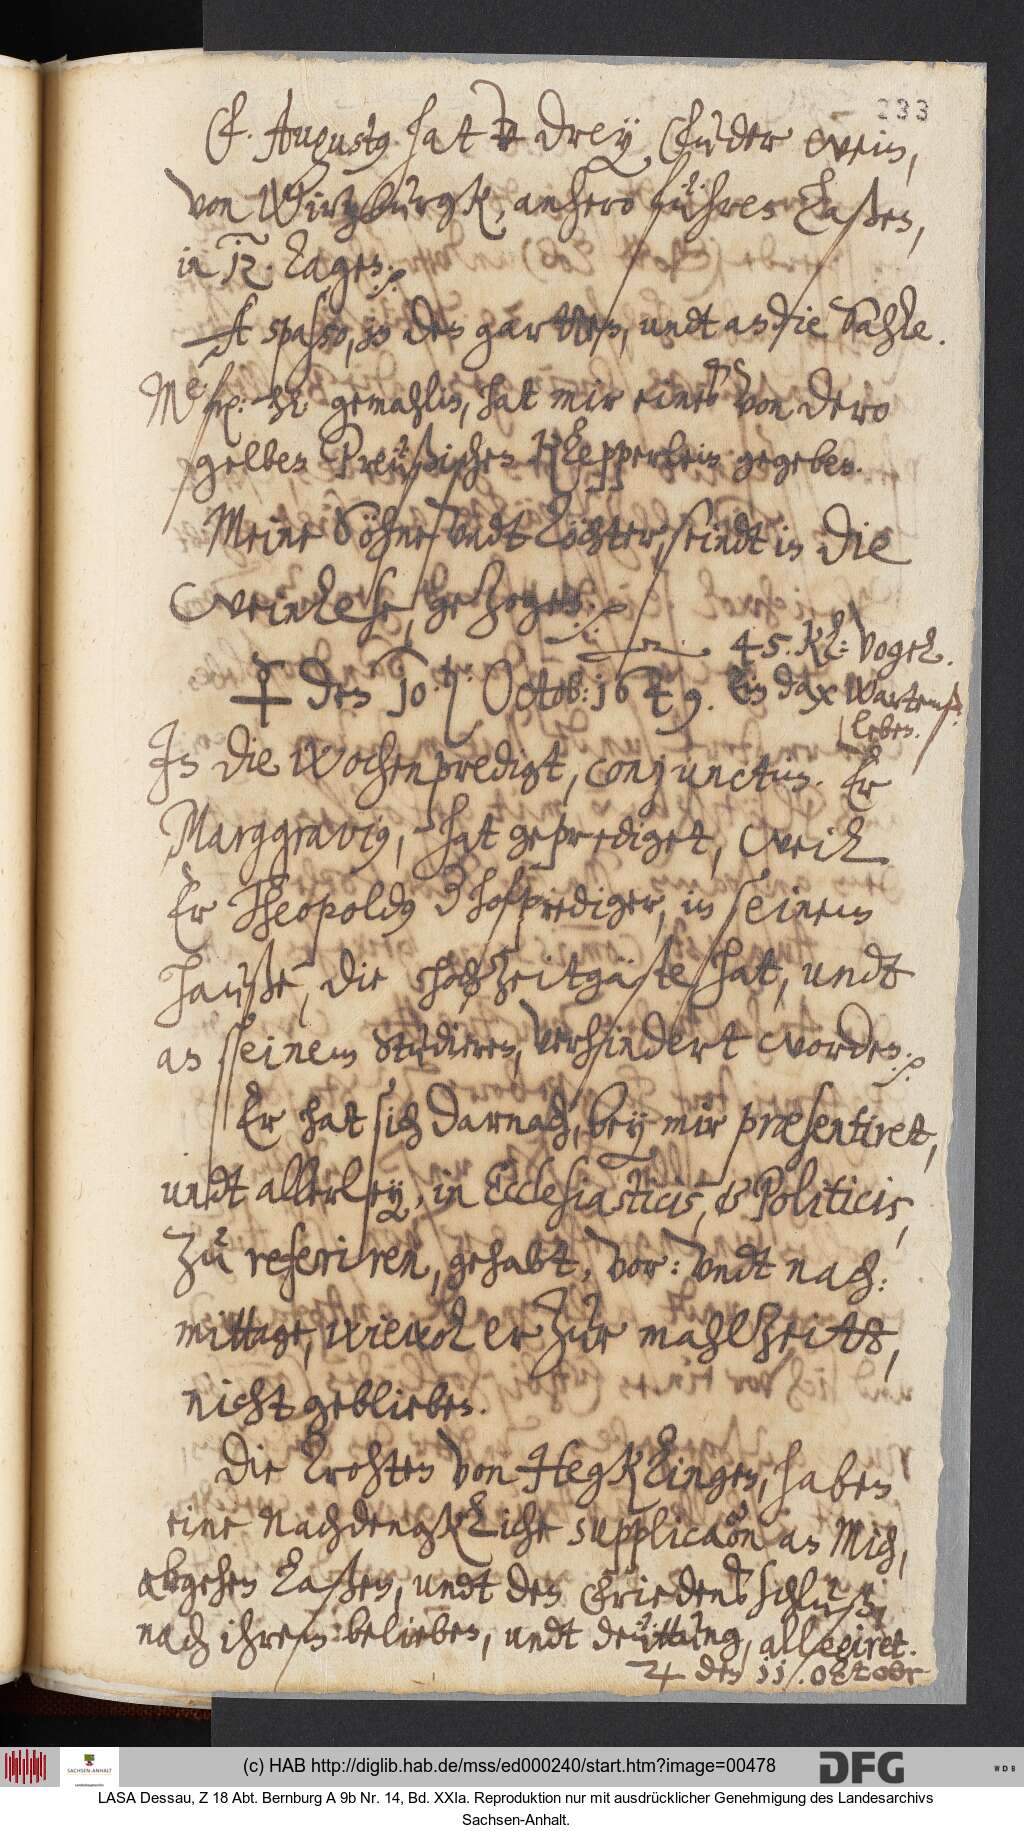 233
F. Augustus hat drey Fuder wein,
von Würtzburgk, anhero führen laßen,
in 12. tagen.
A spasso, in den gartten, undt an die Sahle.
Me: fr: hl: gemahlin, hat mir eines von dero
gelben Preüßischen Klepperlein gegeben.
Meine Söhne undt Töchter, seindt in die
Weinlese, gezogen.
45. Kl: Vogel.
☿ den 10.ten: Octob: 1649. Ein dax Wartens¬
leben.
In die Wochenpredigt, conjunctim. Er
Marggravius, hat geprediget, Weil
Er Theopoldus hofprediger, in seinem
Hauße, die hochzeitgäste hat, undt
an seinem studieren, verhindert worden.
Er hat sich darnach, bey mir præsentiret,
undt allerley, in Ecclesiasticis, & Politicis,
zu referiren, gehabt, vor: undt nach:
mittage, wiewol er zur mahlzeitt,
nicht geblieben.
Die Trohten von Hegklingen, haben
eine nachdengkliche supplicaõn an Mich,
abgehen laßen, undt den Friedensschluß,
nach ihrem belieben, undt deüttung, allegiret.
♃ den 11. October
(c) HAB http://diglib.hab.de/mss/ed000240/start.htm?image=00478
SACHSEN-ANHALT
DFG
WDB
LASA Dessau, Z 18 Abt. Bernburg A 9b Nr. 14, Bd. XXIa. Reproduktion nur mit ausdrücklicher Genehmigung des Landesarchivs
Sachsen-Anhalt.